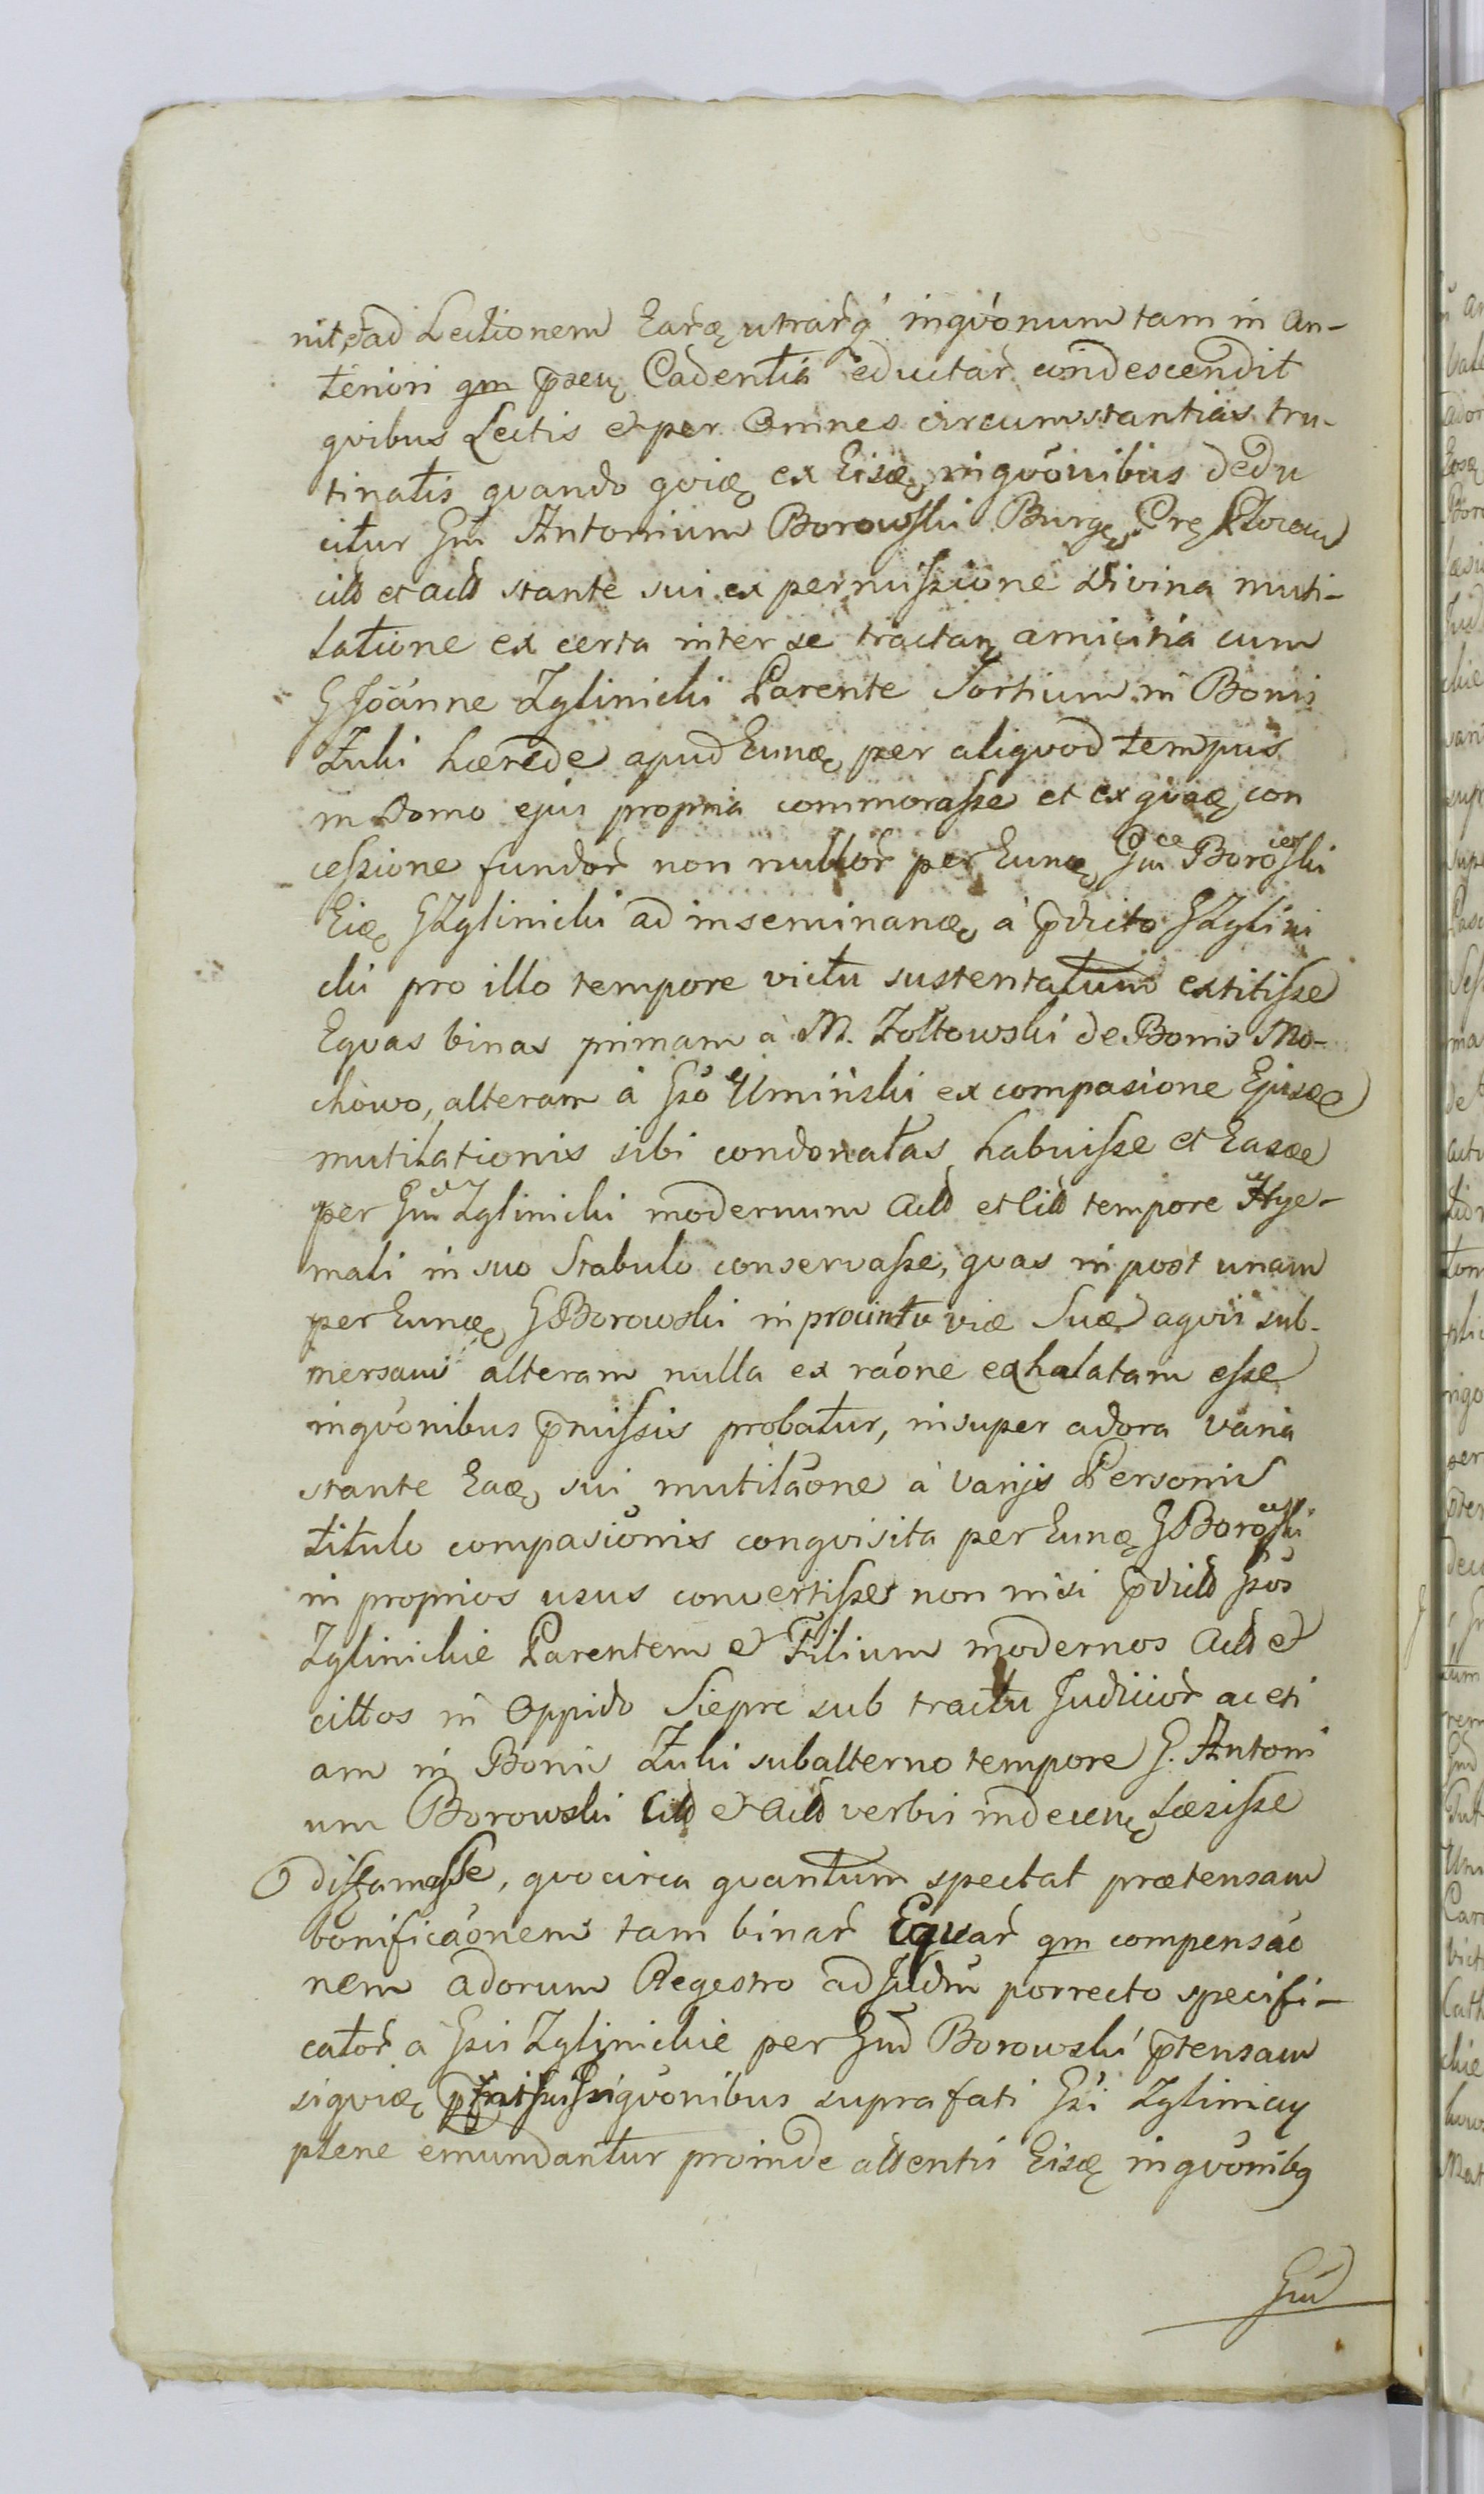 nit, ad Lectionem Earꝫ utrarq́ inqvónum tam in An-
teriori qm p̄sen̨ Cadentia eductar̃ condescendit
qvibus Lectis et per Omnes circumstantias tru-
tinatis qvando qviꝫ ex Eisꝫ inqvónibus dedu
citur Gm̃ Antonium Borowski Burgꝫ
citt̃ et act̃ stante sui ex permissione Divina muti-
latione ex certa inter se tractan̨ amicitia cum
G Joánne Zglinicki Parente Sortium in Bonis
Żuki hærede apud Eunꝫ per aliqvod tempus
in Domo ejus propria commorasse et ex qvaꝫ con
cessione fundor̃ non nullor̃ per Eunꝫ Gm̃ Borowski
Eiꝫ G Zglinicki ad inseminanꝫ à p̄dicto G Zglini
cki pro illo tempore victu sustentatum extitisse
Eqvas binas primam à M. Żołtowski de Bonis Mo-
chowo, alteram à Gsó Umiński ex compasione Ejusꝫ
mutilationis sibi condonatas habuisse et Easꝫ
per Gm̃ Zglinicki modernum Act̃ et Citt̃ tempore Hye-
mali in suo Stabulo conservasse, qvas in post unam
per Eunꝫ G Borowski in procinctu viæ Suæ aqvis sub-
mersam alteram nulla ex ráone exhalatam esse
inqvónibus p̄missis probatur, insuper adora varia
stante Eaꝫ sui mutiláone à varijs Personis
titulo compasionis conqvisita per Eunꝫ G Borowski
in proprios usus convertisse non nisi p̄dict̃ Gsós
Zglinickie Parentem et Filium modernos Act̃ et
cittos in Oppido Sieprc sub tractu Judicior̃ ac eti
am in Bonis Żuki subalterno tempore G. Antoni
um Borowski Citt̃ et Act̃ verbis indecen̨ læsisse
diffamasse, qvocirca qvantum spectat prætensam
bonificáonem tam binar̃ Eqvar̃ qm compensáo
nem adorum Regestro ad Judm̃ porrecto specifi-
cator̃ a Gsis Zglinickie per Gm̃ Borowski p̄tensam
siqviꝫ inqvónibus suprafati Gsi Zgliniccy
plene emundantur proinde attentis Eisꝫ inqvónibq
Gm̃